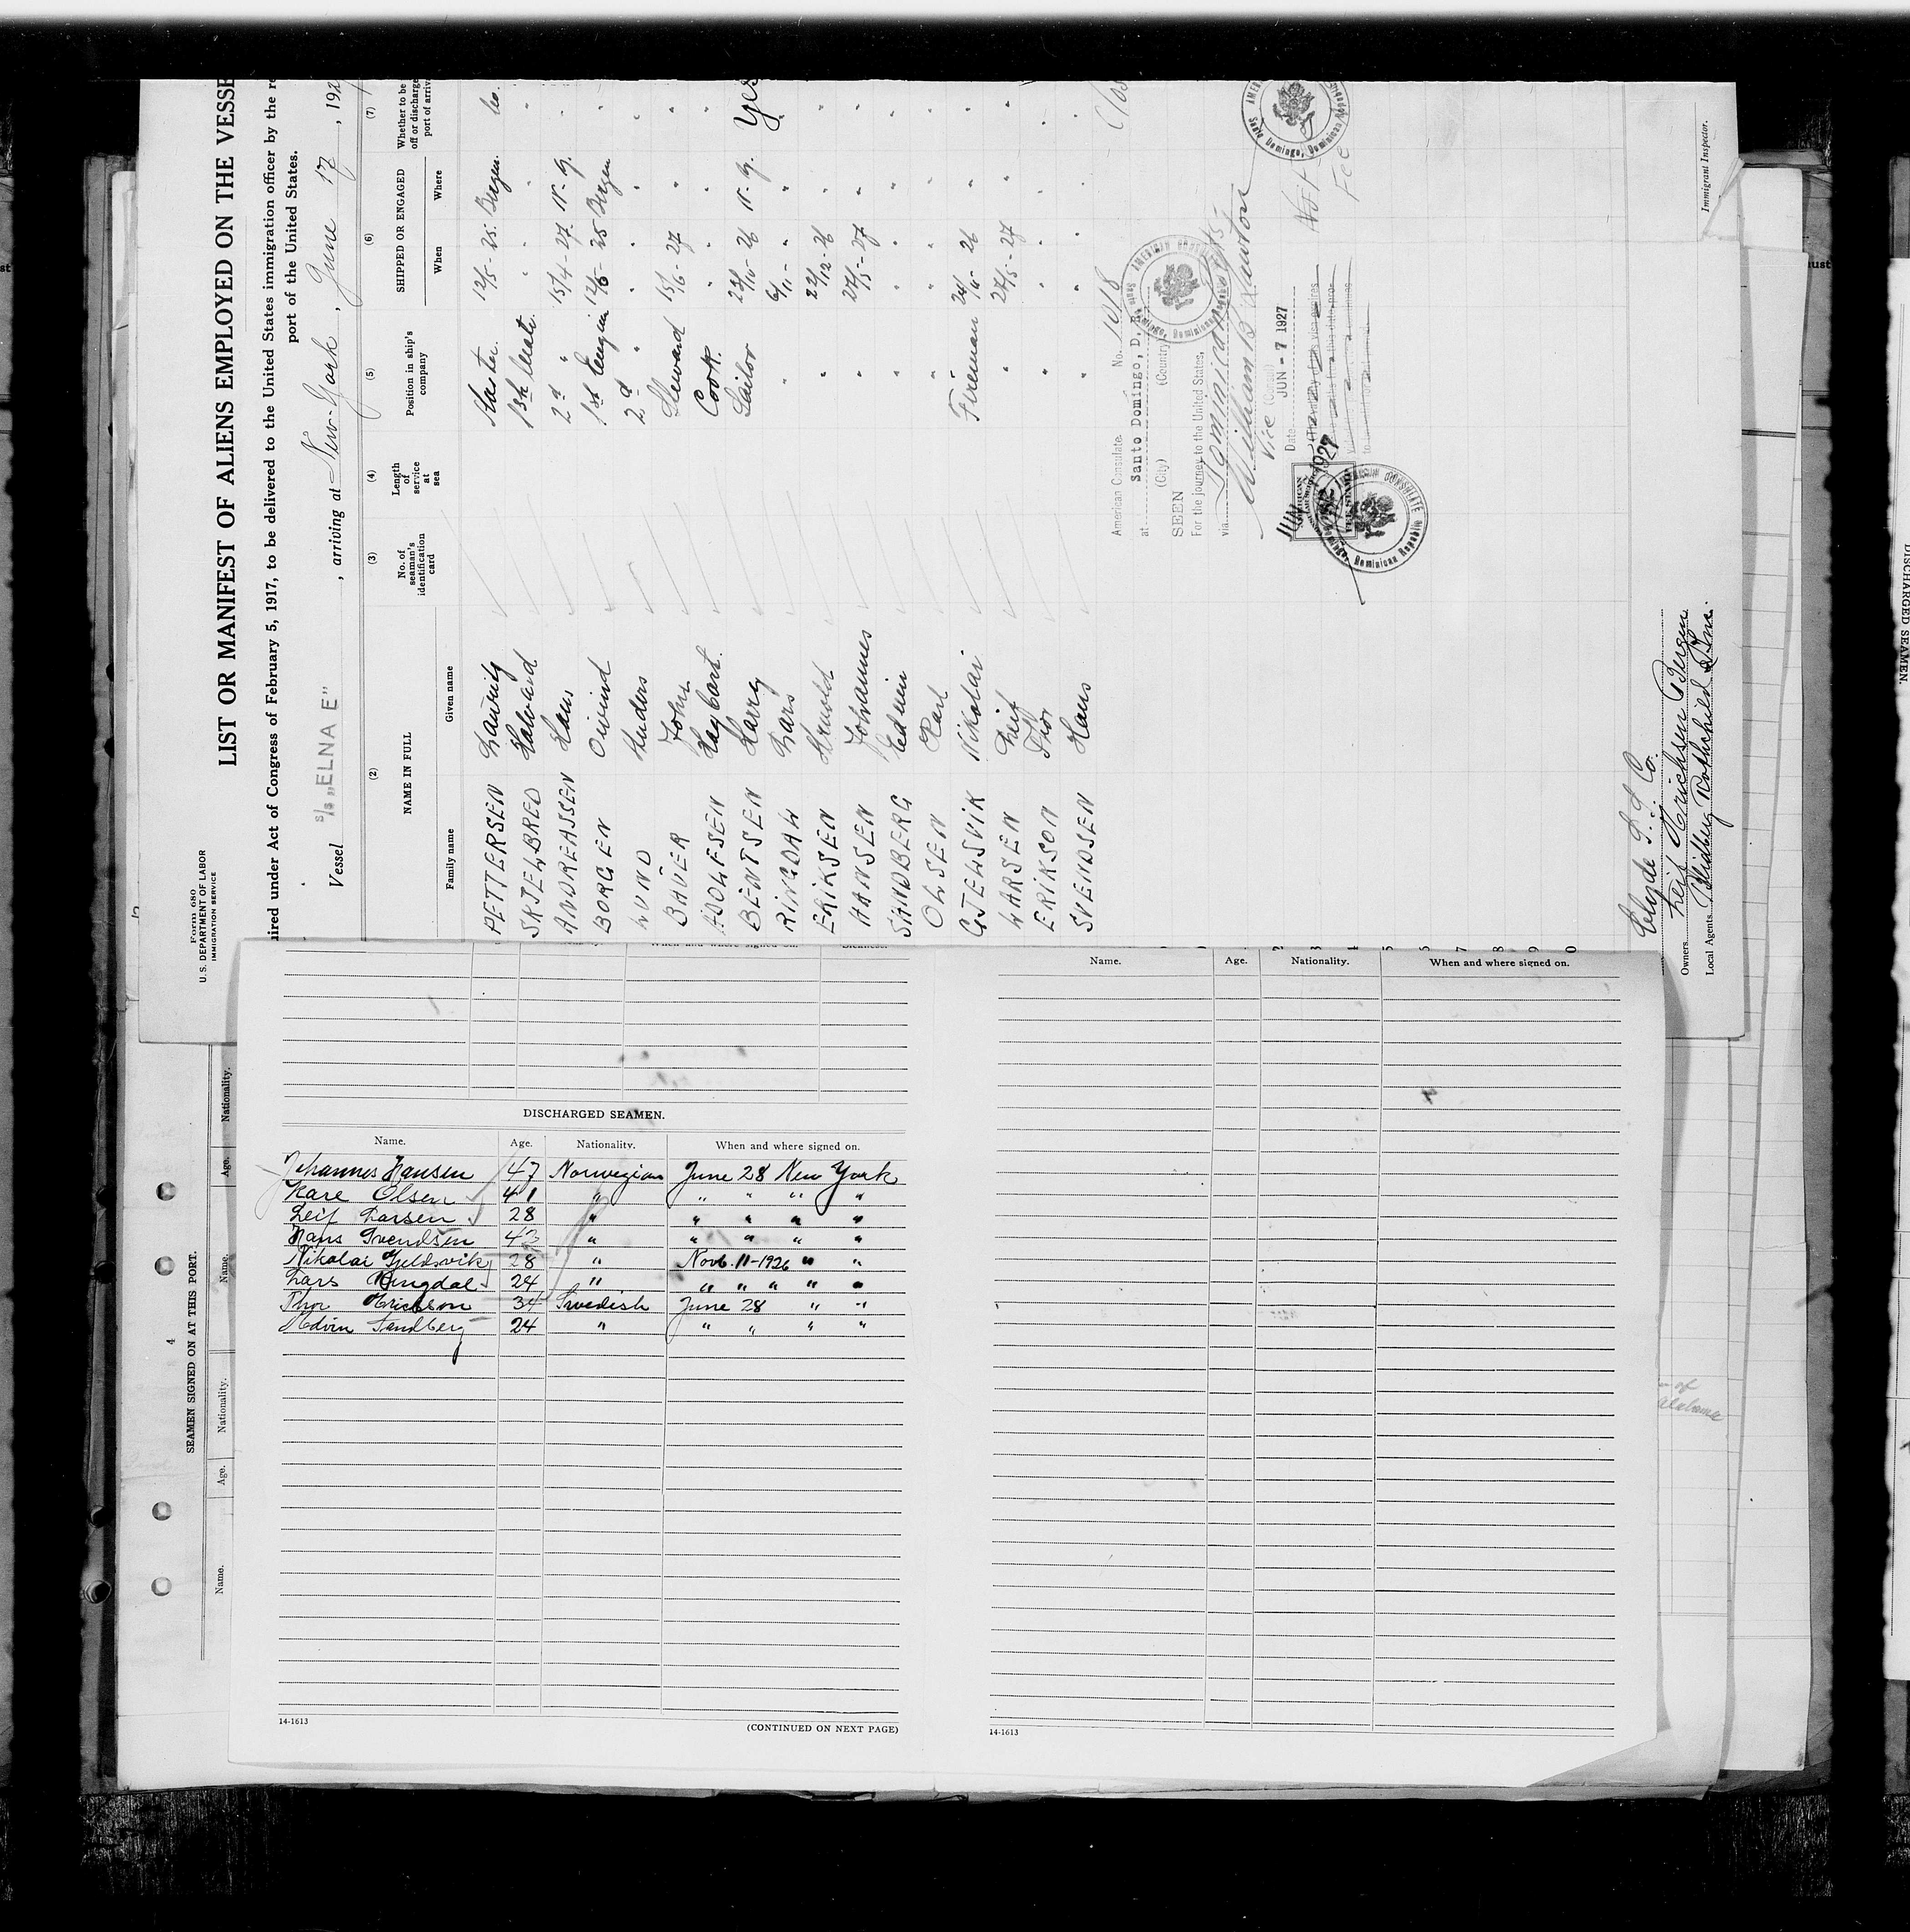 Form 680
U.S. DEPARTMENT OF LABOR
IMMIGRATION SERVICE
LIST OR MANIFEST OF ALIENS EMPLOYED ON THE VESSE
uired under Act of Congress of February 5, 1917, to be delivered to the United States immigration officer by the re
port of the United States.
Vessel S/S "ELNA E", arriving at New-York, June 17, 192
(2) (3) (4) (5) (6) (7)
NAME IN FULL No. of seaman's identification card Length of service at sea Position in ship's company SHIPPED OR ENGAGED Whether to be off or discharge port of arriv
Family name Given name When Where
PETTERSEN Lauritz 12/5-25. Bergen.
SKJELBRED Halvard 1st Mate. " "
ANDREASSEN Hans 2d " 15/4-27. N.Y.
BORGEN Oivind 1st Engin 12/5-25 Bergen
LUND Anders 2d " " "
BAUER John Steward 15/6-27 "
ADOLFSEN Hagbart. Cook. " "
BENTSEN Harry Sailor 23/10-26 N.Y. Yes
RINGDAL Lars " 6/11- " "
ERIKSEN Arnold " 22/12-26 " "
HANSEN Johannes " 27/5-27 " "
SANDBERG Edwin " " " "
OLSEN Karl " " " "
GJELSVIK Nikolai Fireman 24/10-26 " "
LARSEN Leif " 27/5-27 " "
ERIKSON Thor " " " "
SVENDSEN Hans " " " "
American Consulate. No. 1018
at Santo Domingo, D. R.
(City) (Country)
SEEN
For the journey to the United States,
via Dominican Ports
William B Lawton
Vice (Consul)
Date JUN - 7 1927
AMERICAN CONSULATE
Santo Domingo, Dominican Republic
Clyde S.S. Co.
Owners Leif Erichsen Bergen
Local Agents Rothchild Inc.
Immigrant Inspector.
Name. Age. Nationality. When and where signed on.
DISCHARGED SEAMEN.
Name. Age. Nationality. When and where signed on.
Johannes Hansen 47 Norwegian June 28 New York
Kare Olsen 41 " " " " "
Leif Larsen 28 " " " " "
Hans Svendsen 43 " " " " "
Nikolai Gjeldsvik 28 " Novb. 11-1926 " "
Lars Ringdal 24 " " " " " "
Thor Erickson 34 Swedish June 28 " "
Edvin Sandberg 24 " " " " "
14-1613 (CONTINUED ON NEXT PAGE)
14-1613
4
SEAMEN SIGNED ON AT THIS PORT.
Name. Age. Nationality. Name. Age. Nationality.
of
Alabama
DISCHARGED SEAMEN.